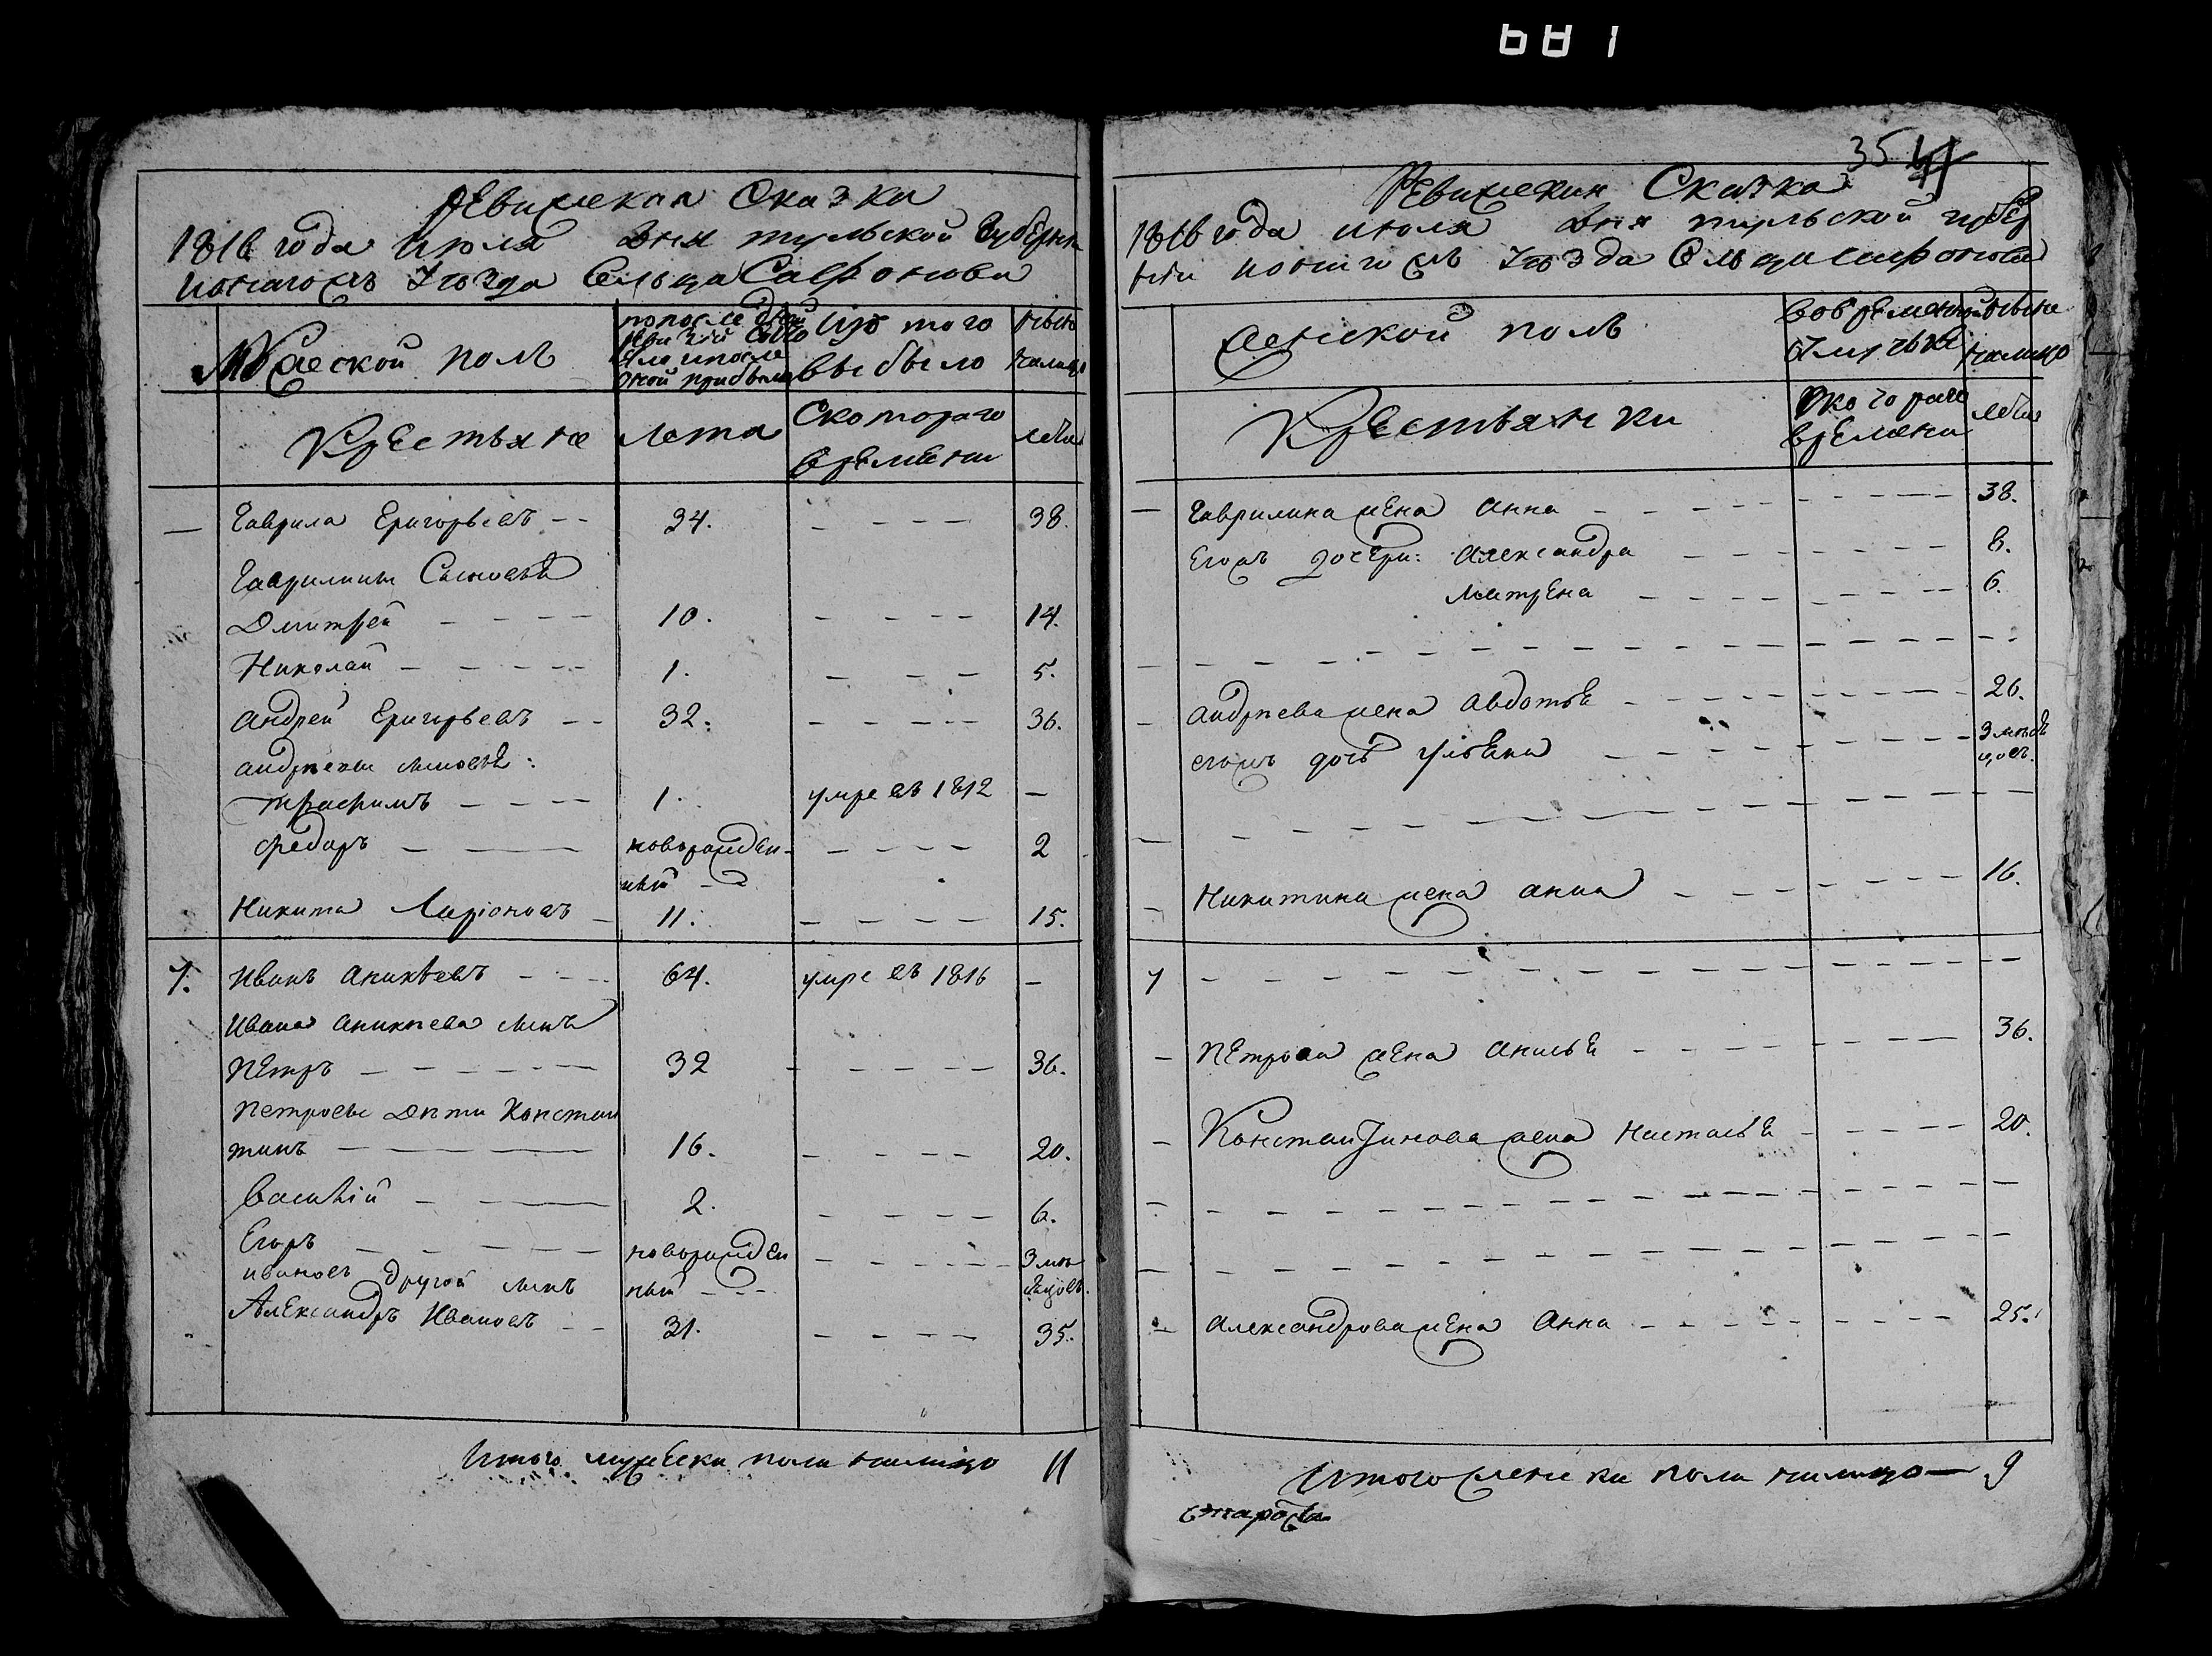 681
Ревижекая Сказка
1816 года июля дня тульской Губерни
Сельца Сафонова
Мужеской полъ
по последней
ревизiи состо
яло и после
оной прибыло
Изъ того
выбыло
ныне
налицо
Крестьяне
лета
Скотораго
времени
лета
Гаврила Григорьевъ — 34. — 38.
Гаврилины Сыновья
Дмитрей — 10. — 14.
Николай — 1. — 5.
Андрей Григорьевъ — 32. — 36.
андреевы сыновья:
трафимъ — 1. умре въ 1812 —
федаръ — новорожден — 2
ный —
Никита Ларiоновъ — 11. — 15.
7. Иванъ Аникѣевъ — 64. умре въ 1816 —
Ивана Аникѣева сынъ
Петръ — 32 — 36.
Петровы дѣти Констан
тинъ — 16. — 20.
Василiй — 2. — 6.
Егоръ — новорожден — 3 мѣ
ный — сяцовъ.
ивановъ другой сынъ
Александръ Ивановъ — 31. — 35.
Итого мужеска пола налицо 11
35
Ревижекая Сказка
1816 года июля дня тульской губер
нiи Сельца Сафонова
женской полъ
Во временной
отлучке
ныне
налицо
Крестьянки
Скотораго
времени
лета
Гаврилина жена Анна — 38.
Егожъ дочери: Александра — 8.
Матрена — 6.
Андреева жена Авдотья — 26.
егожъ дочь ульяна — 3 мѣся
цовъ.
Никитина жена анна — 16.
7
Петрова жена Анисья — 36.
Константинова жена Настасья — 20.
Александрова жена Анна — 25.
Итого женска пола налицо — 9
староста